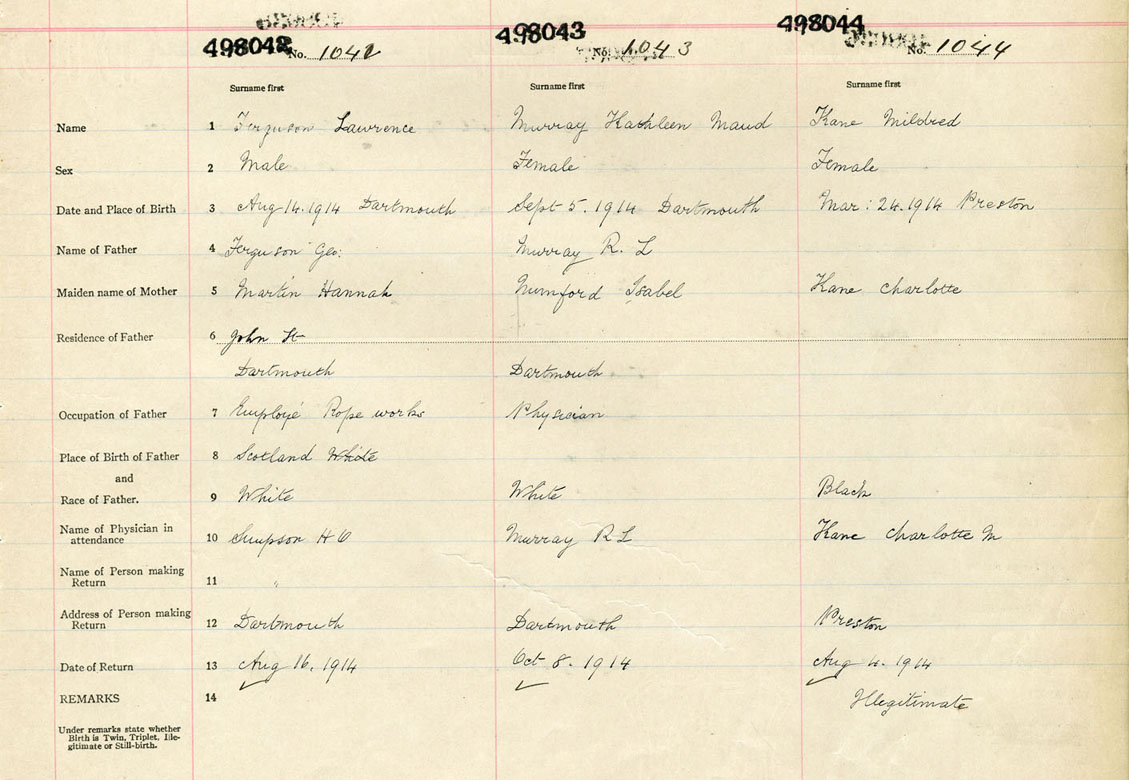 498042 No. 1042 498043 No. 1043 498044 No. 1044
Surname first Surname first Surname first
Name 1 Ferguson Lawrence Murray Kathleen Maud Kane Mildred
Sex 2 Male Female Female
Date and Place of Birth 3 Aug 14. 1914 Dartmouth Sept 5. 1914 Dartmouth Mar: 24. 1914 Preston
Name of Father 4 Ferguson Geo: Murray R. L
Maiden name of Mother 5 Martin Hannah Mumford Isabel Kane Charlotte
Residence of Father 6 John St
Dartmouth Dartmouth
Occupation of Father 7 Employé Rope works Physician
Place of Birth of Father 8 Scotland White
and
Race of Father. 9 White White Black
Name of Physician in
attendance 10 Simpson H Murray R L Kane Charlotte M
Name of Person making
Return 11 "
Address of Person making
Return 12 Dartmouth Dartmouth Preston
Date of Return 13 Aug 16. 1914 Oct 8. 1914 Aug 4. 1914
REMARKS 14 Illegitimate
Under remarks state whether
Birth is Twin, Triplet, Ille-
gitimate or Still-birth.